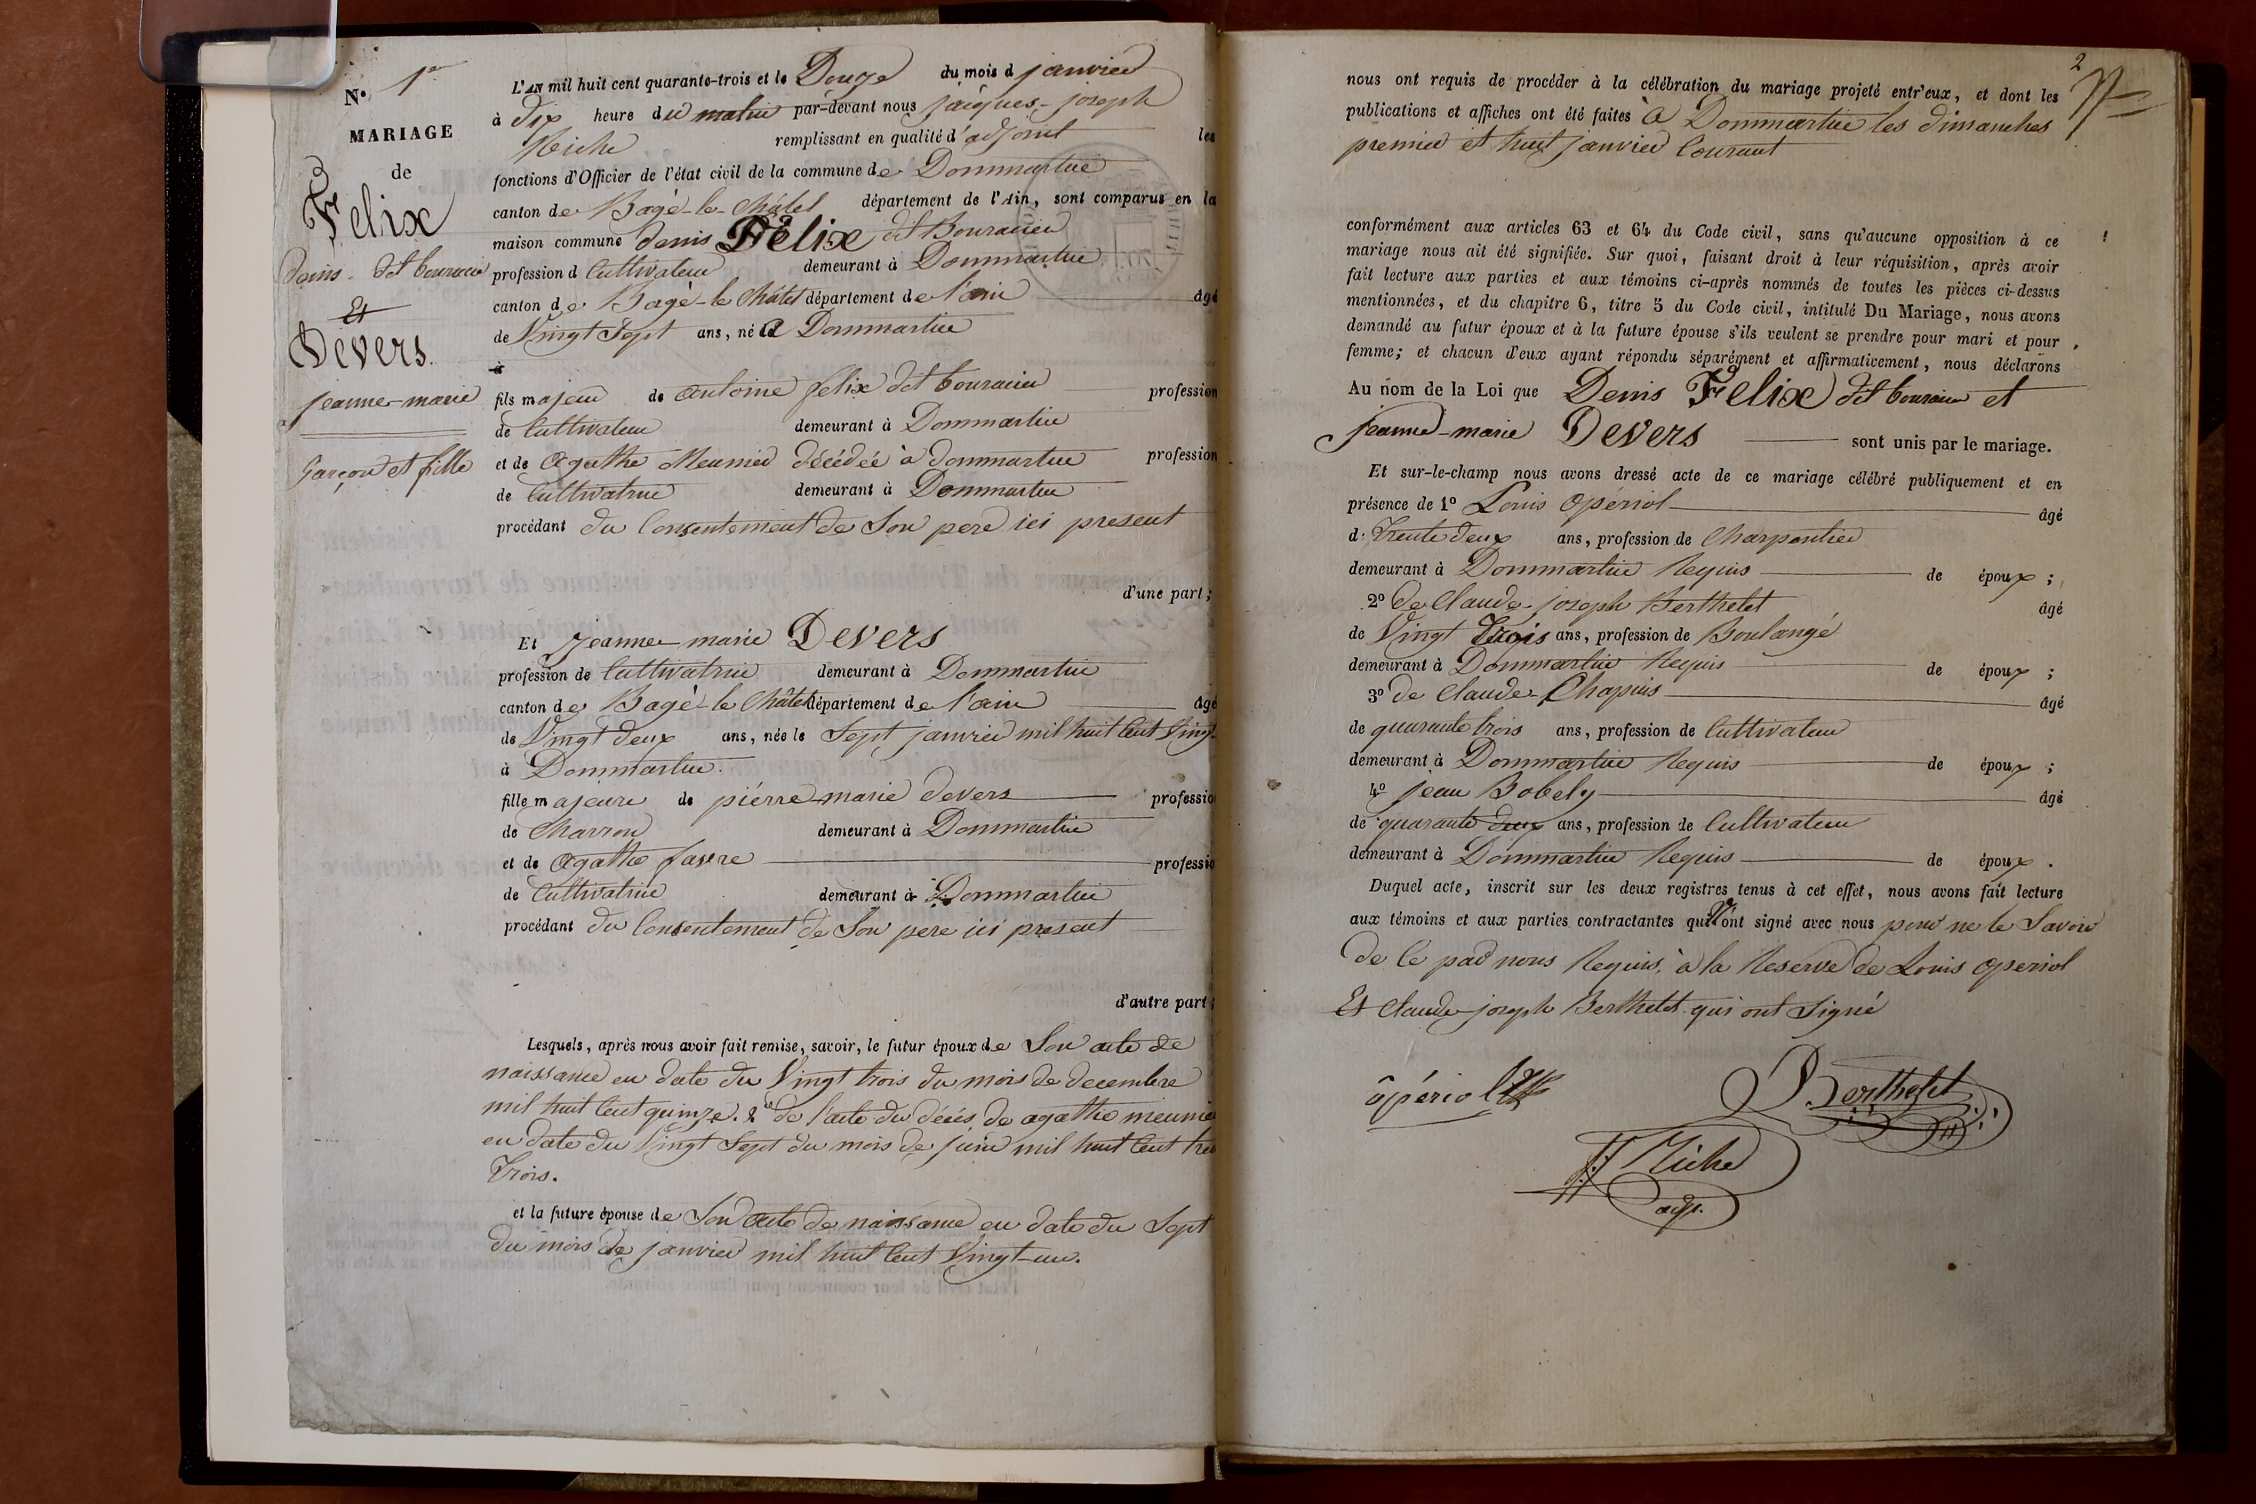 N.° 1er
MARIAGE
de
Felix
denis - dit bouracier
Et
Devers
jeanne-marie
Garçon et fille
L'AN mil huit cent quarante-trois et le Douze du mois d janvier
à dix heure du matin par-devant nous jacques-joseph
Miche remplissant en qualité d'adjoint les
fonctions d'Officier de l'état civil de la commune de Dommartin
canton de Bagé-le-Châtel département de l'Ain, sont comparus en la
maison commune denis Félix dit Bouracier
profession d Cultivateur demeurant à Dommartin
canton de Bagé-le Châtel département de l'ain âgé
de Vingt Sept ans, né à Dommartin
à
fils majeur de antoine felix dit bouracier profession
de Cultivateur demeurant à Dommartin
et de agathe Meunier décédée à dommartin profession
de Cultivatrice demeurant à Dommartin
procédant du Consentement de Son pere ici present
d'une part;
Et Jeanne-marie Devers
profession de Cultivatrice demeurant à Dommartin
canton de Bagé-le Châtel département de l'ain âgé
de Vingt deux ans, née le Sept janvier mil huit Cent Vingt-
à Dommartin.
fille majeure de piérre-marie devers profession
de Charron demeurant à Dommartin
et de agathe favre profession
de Cultivatrice demeurant à Dommartin
procédant du Consentement de Son pere ici present
d'autre part;
Lesquels, après nous avoir fait remise, savoir, le futur époux de Son acte de
naissance en date du Vingt trois du mois de decembre
mil huit Cent quinze. 2° de l'acte du décés de agathe meunier
en date du Vingt Sept du mois de juin mil huit Cent tre
Trois.
et la future épouse de Son acte de naissance en date du Sept
du mois de janvier mil huit Cent Vingt-un.
2
nous ont requis de procéder à la célébration du mariage projeté entr'eux, et dont les
publications et affiches ont été faites à Dommartin les dimanches
premier et huit janvier Courant
conformément aux articles 63 et 64 du Code civil, sans qu'aucune opposition à ce
mariage nous ait été signifiée. Sur quoi, faisant droit à leur réquisition, après avoir
fait lecture aux parties et aux témoins ci-après nommés de toutes les pièces ci-dessus
mentionnées, et du chapitre 6, titre 5 du Code civil, intitulé Du Mariage, nous avons
demandé au futur époux et à la future épouse s'ils veulent se prendre pour mari et pour
femme; et chacun d'eux ayant répondu séparément et affirmativement, nous déclarons
Au nom de la Loi que Denis Felix dit bouracier et
jeanne-marie Devers sont unis par le mariage.
Et sur-le-champ nous avons dressé acte de ce mariage célébré publiquement et en
présence de 1° Louis opériol âgé
d. Trente deux ans, profession de Charpentier
demeurant à Dommartin Requis de époux ;
2° de Claude-joseph Berthelet âgé
de Vingt Trois ans, profession de Boulangé
demeurant à Dommartin Requis de époux ;
3° de Claude Chapuis âgé
de quarante trois ans, profession de Cultivateur
demeurant à Dommartin Requis de époux ;
4° jean Bobely âgé
de quarante deux ans, profession de Cultivateur
demeurant à Dommartin Requis de époux .
Duquel acte, inscrit sur les deux registres tenus à cet effet, nous avons fait lecture
aux témoins et aux parties contractantes qui n'ont signé avec nous pour ne le Savoir
de Ce par nous Requis, à la Reserve de Louis operiol
Et Claude-joseph Berthelet qui ont Signé
ôpériol
Berthelet
JJ Miche
adj.